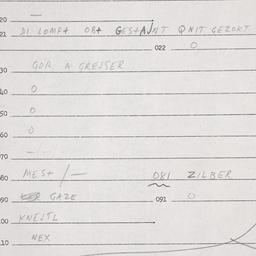 20 —
21 DI LOMPT OBT GESTANT Q NIT GEZOKT
022 0
30 GOR. A GRESSER
40 0
50 0
60 0
70 —
80 MEST / — 081 ZILBER
90 GAZE 091 0
00 KNEITL
10 NEX